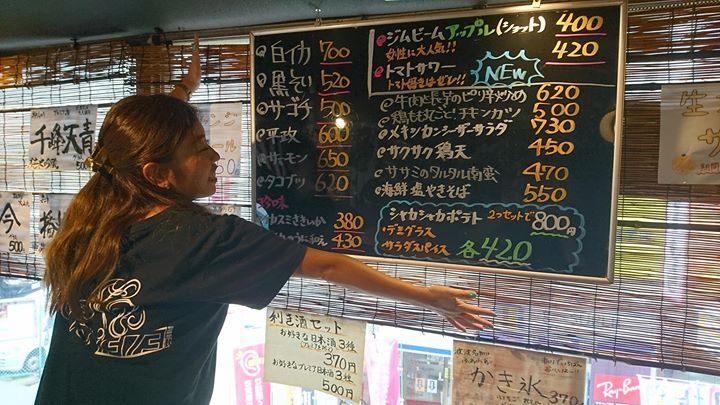 千峰天青
今
500
白イカ 700
黒そい 520
サゴチ 500
平政 600
サーモン 650
タコブツ 620
珍味
380
430
ジムビームアップル(ショット) 400
女性に大人気!! 420
トマトサワー
トマト好きはぜひ!! NEW
牛肉と長芋のピリ辛炒め 620
鶏ももまるごと!チキンカツ 500
メキシカンシーザーサラダ 730
サクサク鶏天 450
ササミのタルタル南蛮 470
海鮮塩やきそば 550
シャカシャカポテト 2つセットで800円
・デミグラス
サラダスパイス 各420
利き酒セット
お好きな日本酒3種
370円
お好きなプレミア日本酒3種
500円
かき氷
370
Ray-Ban